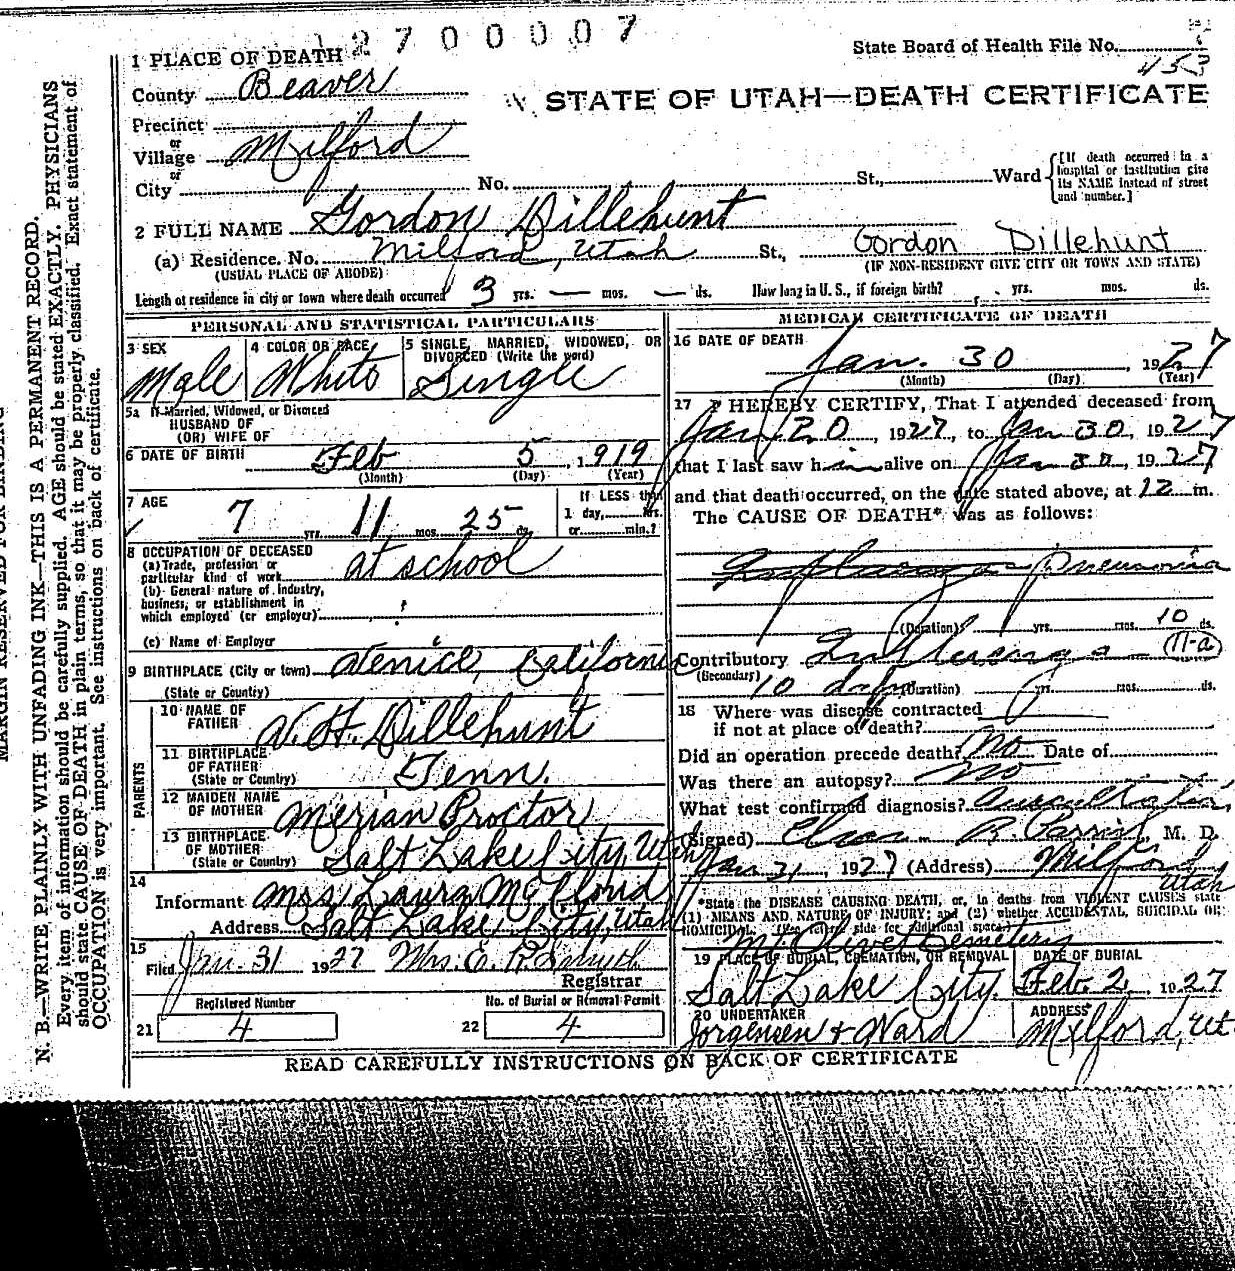 2700007
State Board of Health File No.
453
1 PLACE OF DEATH
County Beaver
STATE OF UTAH—DEATH CERTIFICATE
Precinct
or
Village Milford
or
City No. St., Ward
[If death occurred in a hospital or institution give its NAME instead of street and number.]
2 FULL NAME Gordon Dillehunt
(a) Residence. No. Milford, Utah St., Gordon Dillehunt
(USUAL PLACE OF ABODE) (IF NON-RESIDENT GIVE CITY OR TOWN AND STATE)
Length of residence in city or town where death occurred 3 yrs. — mos. — ds. How long in U. S., if foreign birth? yrs. mos. ds.
PERSONAL AND STATISTICAL PARTICULARS
3 SEX
Male
4 COLOR OR RACE
White
5 SINGLE, MARRIED, WIDOWED, OR DIVORCED (Write the word)
Single
5a If Married, Widowed, or Divorced
HUSBAND OF
(OR) WIFE OF
6 DATE OF BIRTH Feb 5, 1919
(Month) (Day) (Year)
7 AGE
7 yrs. 11 mos. 25 ds.
If LESS than
1 day, hrs.
or min.?
8 OCCUPATION OF DECEASED
(a) Trade, profession or
particular kind of work at school
(b) General nature of industry,
business, or establishment in
which employed (or employer)
(c) Name of Employer
9 BIRTHPLACE (City or town) Venice, California
(State or Country)
PARENTS
10 NAME OF
FATHER V. H. Dillehunt
11 BIRTHPLACE
OF FATHER
(State or Country) Tenn.
12 MAIDEN NAME
OF MOTHER Merian Proctor
13 BIRTHPLACE
OF MOTHER
(State or Country) Salt Lake City, Utah
14
Informant Mrs Laura McCloud
Address Salt Lake City, Utah
15
Filed Jan. 31 1927 Mrs. E. R. Smyth
Registrar
Registered Number
21 4
No. of Burial or Removal Permit
22 4
MEDICAL CERTIFICATE OF DEATH
16 DATE OF DEATH
Jan. 30, 1927
(Month) (Day) (Year)
17 I HEREBY CERTIFY, That I attended deceased from
Jan 20, 1927, to Jan 30, 1927
that I last saw him alive on Jan 30, 1927
and that death occurred, on the date stated above, at 12 m.
The CAUSE OF DEATH* was as follows:
Influenza Pneumonia
(Duration) yrs. mos. 10 ds.
Contributory Influenza 11-a
(Secondary) 10 days (Duration) yrs. mos. ds.
18 Where was disease contracted
if not at place of death?
Did an operation precede death? No Date of
Was there an autopsy? No
What test confirmed diagnosis? Auscultation,
(Signed) R. Parrish, M. D.
Jan 31, 1927 (Address) Milford,
Utah
*State the DISEASE CAUSING DEATH, or, in deaths from VIOLENT CAUSES state
(1) MEANS AND NATURE OF INJURY; and (2) whether ACCIDENTAL, SUICIDAL OR
HOMICIDAL. (See reverse side for additional space.)
Mt Olivet Cemetery
19 PLACE OF BURIAL, CREMATION, OR REMOVAL
Salt Lake City.
DATE OF BURIAL
Feb. 2, 1927
20 UNDERTAKER
Jorgensen & Ward
ADDRESS
Milford, Ut.
READ CAREFULLY INSTRUCTIONS ON BACK OF CERTIFICATE
MARGIN RESERVED FOR BINDING
N. B.—WRITE PLAINLY WITH UNFADING INK—THIS IS A PERMANENT RECORD.
Every item of information should be carefully supplied. AGE should be stated EXACTLY. PHYSICIANS
should state CAUSE OF DEATH in plain terms, so that it may be properly classified. Exact statement of
OCCUPATION is very important. See instructions on back of certificate.